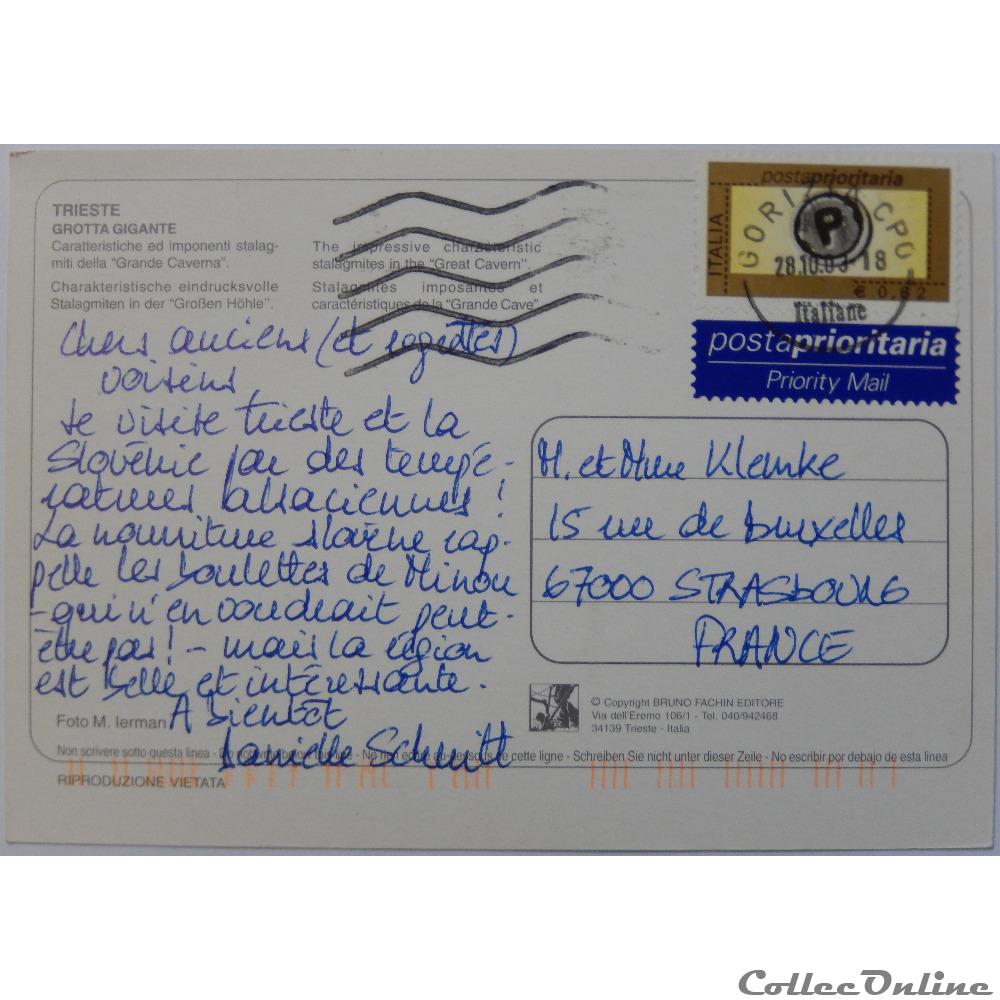 TRIESTE
GROTTA GIGANTE
Caratteristiche ed imponenti stalag-
miti della "Grande Caverna".
Charakteristische eindrucksvolle
Stalagmiten in der "Großen Höhle".
The impressive characteristic
stalagmites in the "Great Cavern".
Stalagmites imposantes et
caractéristiques de la "Grande Cave".
postaprioritaria
ITALIA
P
€ 0,62
GORIZIA CPO
28.10.03-18
Italiane
postaprioritaria
Priority Mail
Chers anciens (et regrettés)
voisins
Je visite Trieste et la
Slovénie par des tempé-
ratures alsaciennes !
La nourriture slovène rap-
pelle les boulettes de Minou
- qui n'en voudrait peut-
être pas ! - mais la région
est belle et intéressante.
A bientôt
Danielle Schmitt
M. et Mme Klemke
15 rue de bruxelles
67000 STRASBOURG
FRANCE
Foto M. Ierman
© Copyright BRUNO FACHIN EDITORE
Via dell'Eremo 106/1 - Tel. 040/942468
34139 Trieste - Italia
Non scrivere sotto questa linea - Do not write below this line - Ne rien écrire au-dessous de cette ligne - Schreiben Sie nicht unter dieser Zeile - No escribir por debajo de esta linea
RIPRODUZIONE VIETATA
CollecOnline